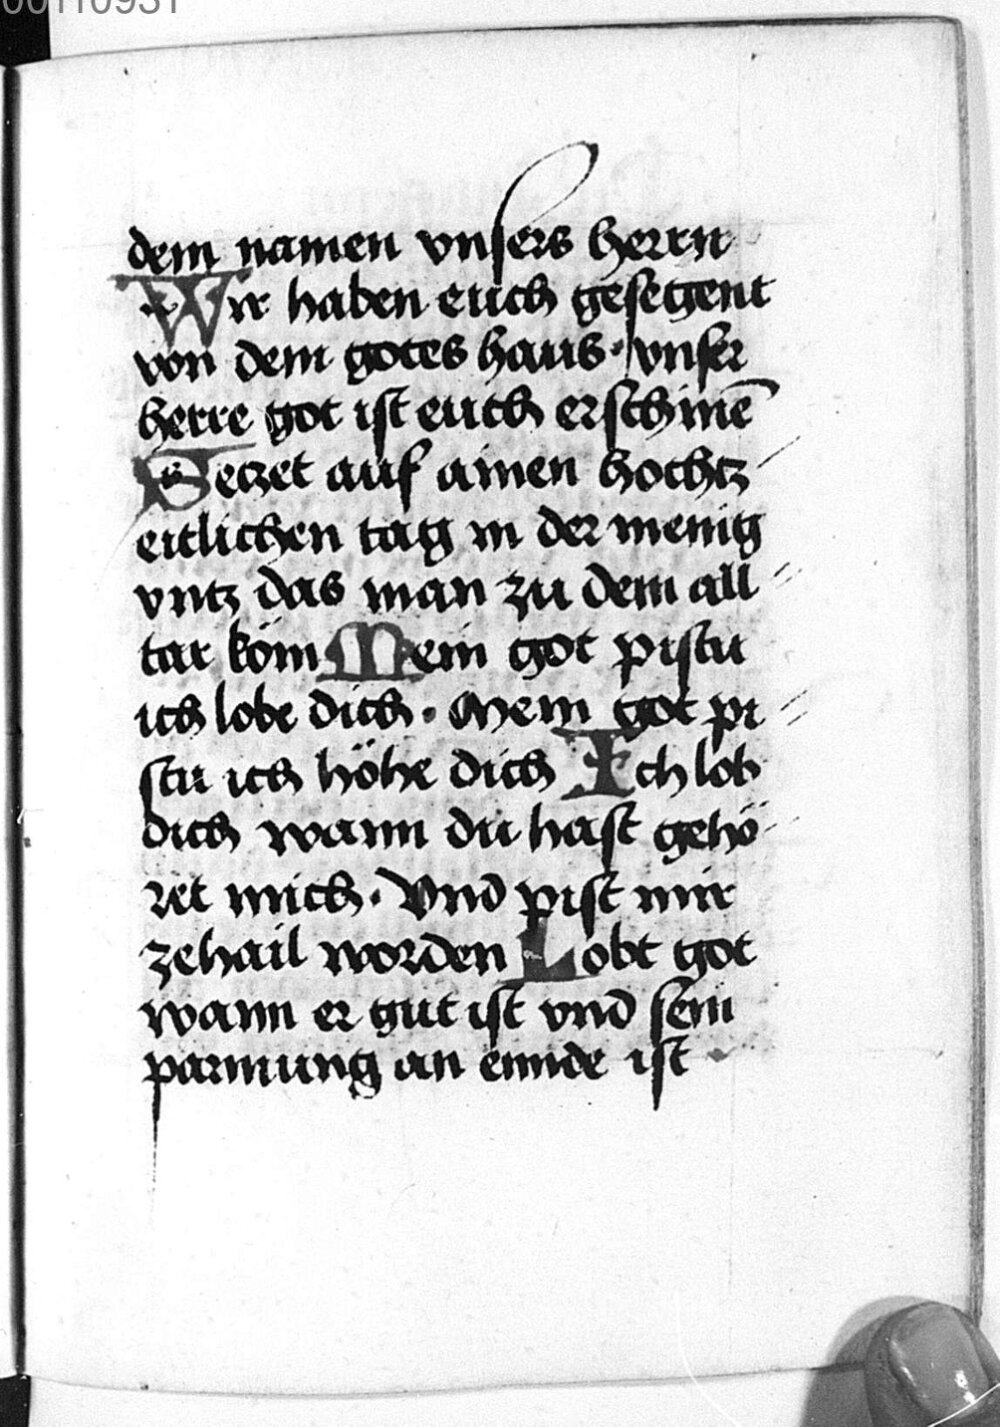 00110931
dem namen vnsers herrn
Wir haben euch gesegent
von dem gotes haus · vnser
herre got ist euch erschinē
Setzet auf ainen hochtz
eitlichen tag in der menig
vntz das man zu dem all
tar köm Mein got pistu
ich lobe dich · Mein got pi
stu ich höhe dich Ich lob
dich wann du hast gehö
ret mich · Vnd pist mir
zehail worden Lobt got
wann er gut ist vnd sein
parmung an ennde ist